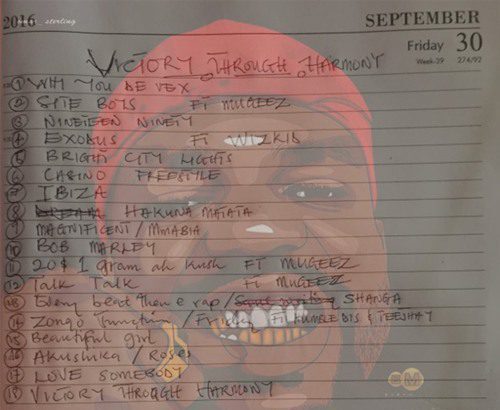 2016
sterling
SEPTEMBER
Friday 30
Week-39 274/92
VICTORY THROUGH HARMONY
1 WHY YOU DE VEX
2 SITE BOYS FT MUGEEZ
3 NINETEEN NINETY
4 EXODUS FT WIZKID
5 BRIGHT CITY LIGHTS
6 CASINO FREESTYLE
7 IBIZA
8 DREAM HAKUNA MATATA
9 MAGNIFICENT / MMABIA
10 BOB MARLEY
11 20$ 1 gram ah kush FT MUGEEZ
12 Talk Talk Ft MUGEEZ
13 Every beat them e rap / SHANGA
14 Zongo Junction / Ft HUMBLE DIS & TEEJHAY
15 Beautiful girl
16 Akushika / Roses
17 LOVE SOMEBODY
18 VICTORY THROUGH HARMONY